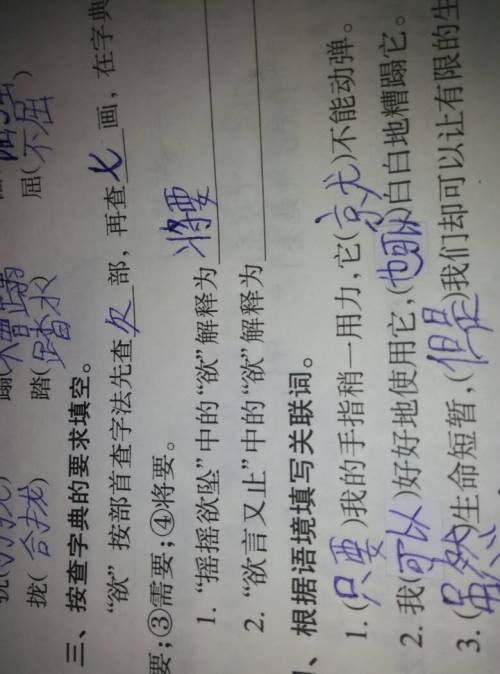 屈(不屈)
拢(合拢) 踏(踏水)
三、按查字典的要求填空。
“欲”按部首查字法先查欠部，再查七画，在字典
要;③需要;④将要。
1. “摇摇欲坠”中的“欲”解释为将要
2. “欲言又止”中的“欲”解释为
、根据语境填写关联词。
1. (只要)我的手指稍一用力,它()不能动弹。
2. 我(可以)好好地使用它,(也可以)白白地糟蹋它。
3. (虽然)生命短暂,(但是)我们却可以让有限的生